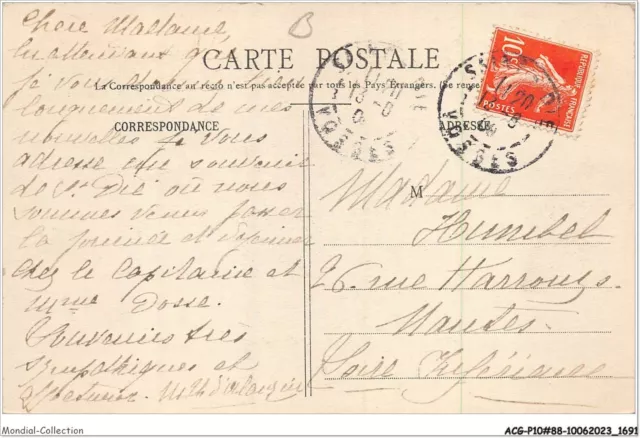 Chère Madame,
En attendant que
je vous donne
longuement de mes
nouvelles je vous
adresse un souvenir
de St Dié où nous
sommes venus passer
la journée et déjeuner
chez le Capitaine et
Mme Dosse.
Souvenirs très
sympathiques et
affectueux.
B
CARTE POSTALE
La Correspondance au recto n'est pas acceptée par tous les Pays Étrangers. (Se rense
CORRESPONDANCE
ADRESSE
10c
REPUBLIQUE FRANÇAISE
POSTES
VOSGES
M
Madame
Humbel
26 rue Harrouys
Nantes
Loire Inférieure
Mondial-Collection
ACG-P10#88-10062023_1691